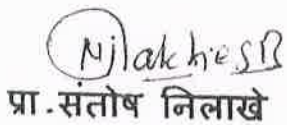 Nilakhe SB
प्रा.संतोष निलाखे